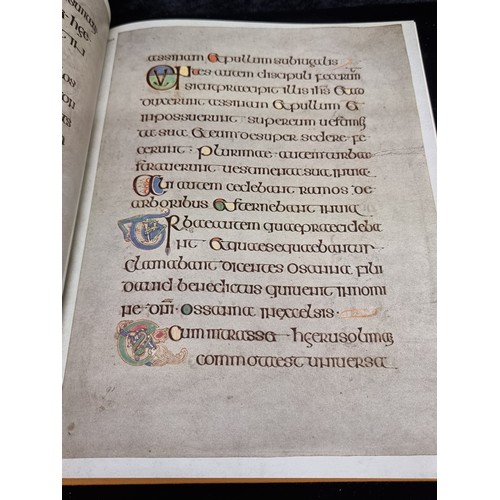 assinam & pullum subiugalis
autem discipuli fecerun
sicut praecipit illis ihs & ad
duxerunt assinam & pullum &
impossuerunt super eum uestim
ta sua & eum desuper sedere fe
cerunt plurimae autem turbae
strauerunt uestimenta sua in uia
Alii autem cedebant ramos de
arboribus & sternebant in uia
Turbae autem quae praecideba
nt & quae sequebantur
clamabant dicentes osanna fili
dauid benedictus qui uenit in nomi
ne dni ossanna in excelsis
& cum intrasset hierusolima
commota est uniuersa